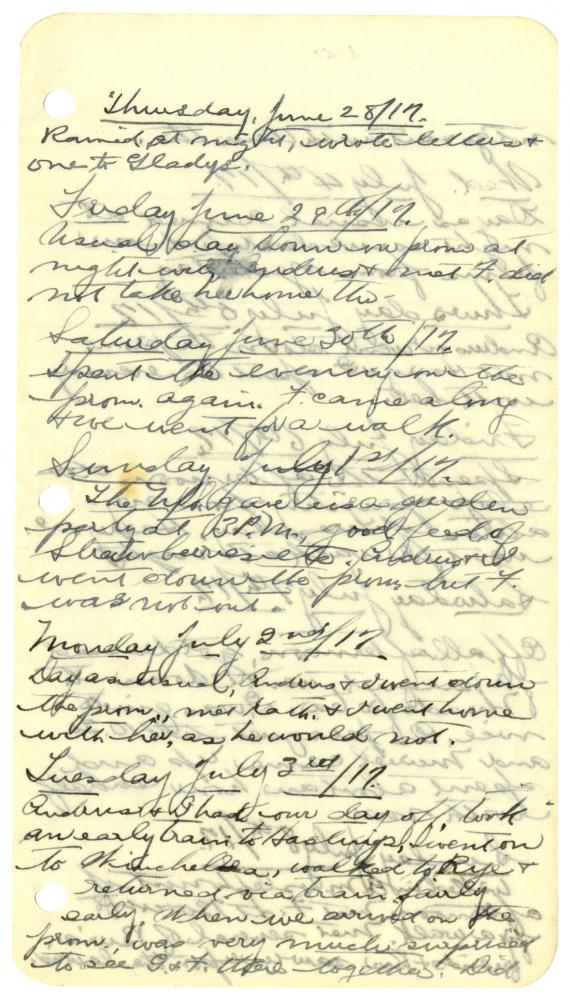 Thursday, June 28/17.
Rained at night, wrote letters &
one to Gladys.
Friday June 29th/17.
Usual day down on prom at
night with Andrus & met F. did
not take her home tho-
Saturday June 30th/17.
Spent the evening on the
prom. again. F. came along
& we went for a walk.
Sunday July 1st/17.
The gave us a garden
party at 3 P.M., good feed of
Strawberries etc. Andrus & I
went down the prom, but F.
was not out.
Monday July 2nd/17
Day as usual, Andrus & I went down
the prom, met Kath. & I went home
with her, as he would not.
Tuesday July 3rd/17.
Andrus & I had our day off, took
an early train to Hastings, I went on
to Winchelsea, walked to Rye &
returned via train fairly
early. When we arrived on the
prom, was very much surprised
to see G. & F. there together. Did